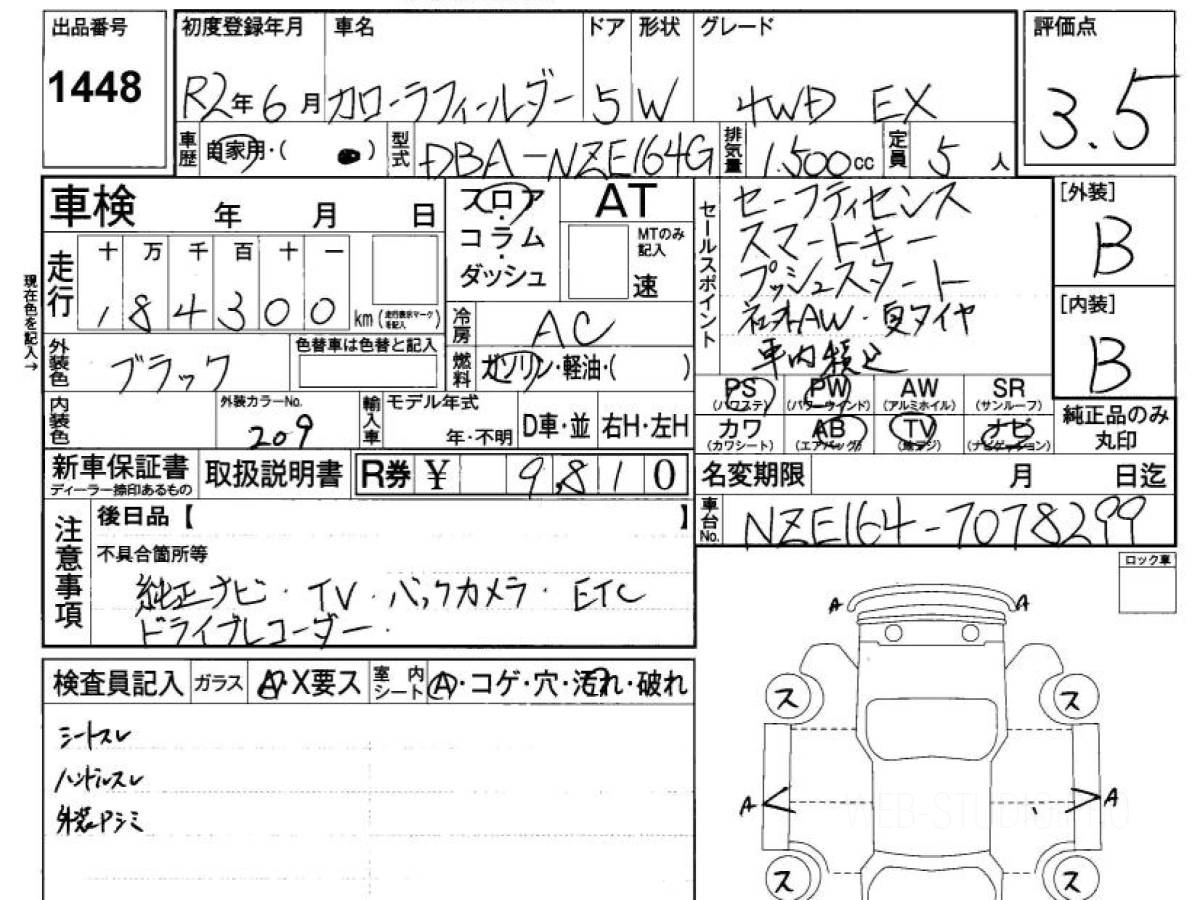 出品番号
1448
初度登録年月 車名 ドア 形状 グレード
R2年6月 カローラフィールダー 5 W 4WD EX
評価点
3.5
車歴 自家用・( ) 型式 DBA-NZE164G 排気量 1.500cc 定員 5人
車検 年 月 日
フロア・コラム・ダッシュ
AT
MTのみ記入
速
セールスポイント
セーフティセンス
スマートキー
プッシュスタート
ネット AW・夏タイヤ
車内積込
[外装]
B
[内装]
B
現在色を記入→
走行 十 万 千 百 十 一
184300 km (走行表示マークを記入)
冷房 AC
外装色 ブラック 色替車は色替と記入
燃料 ガソリン・軽油・( )
PS (パワステ) PW (パワーウインド) AW (アルミホイル) SR (サンルーフ)
カワ (カワシート) AB (エアバッグ) TV (地デジ) ナビ (ナビゲーション)
純正品のみ丸印
内装色 外装カラーNo. 209 輸入車 モデル年式 年・不明 D車・並 右H・左H
新車保証書 ディーラー捺印あるもの 取扱説明書 R券 ¥ 9,810
名変期限 月 日迄
車台No. NZE164-7078299
注意事項
後日品【 】
不具合箇所等
純正ナビ・TV・バックカメラ・ETC
ドライブレコーダー・
ロック車
検査員記入 ガラス A・X要ス 室内シート A・コゲ・穴・汚れ・破れ
シートスレ
ハンドルスレ
外装Pシミ
A A
ス ス
A A
ス ス
WEB-STUDIO